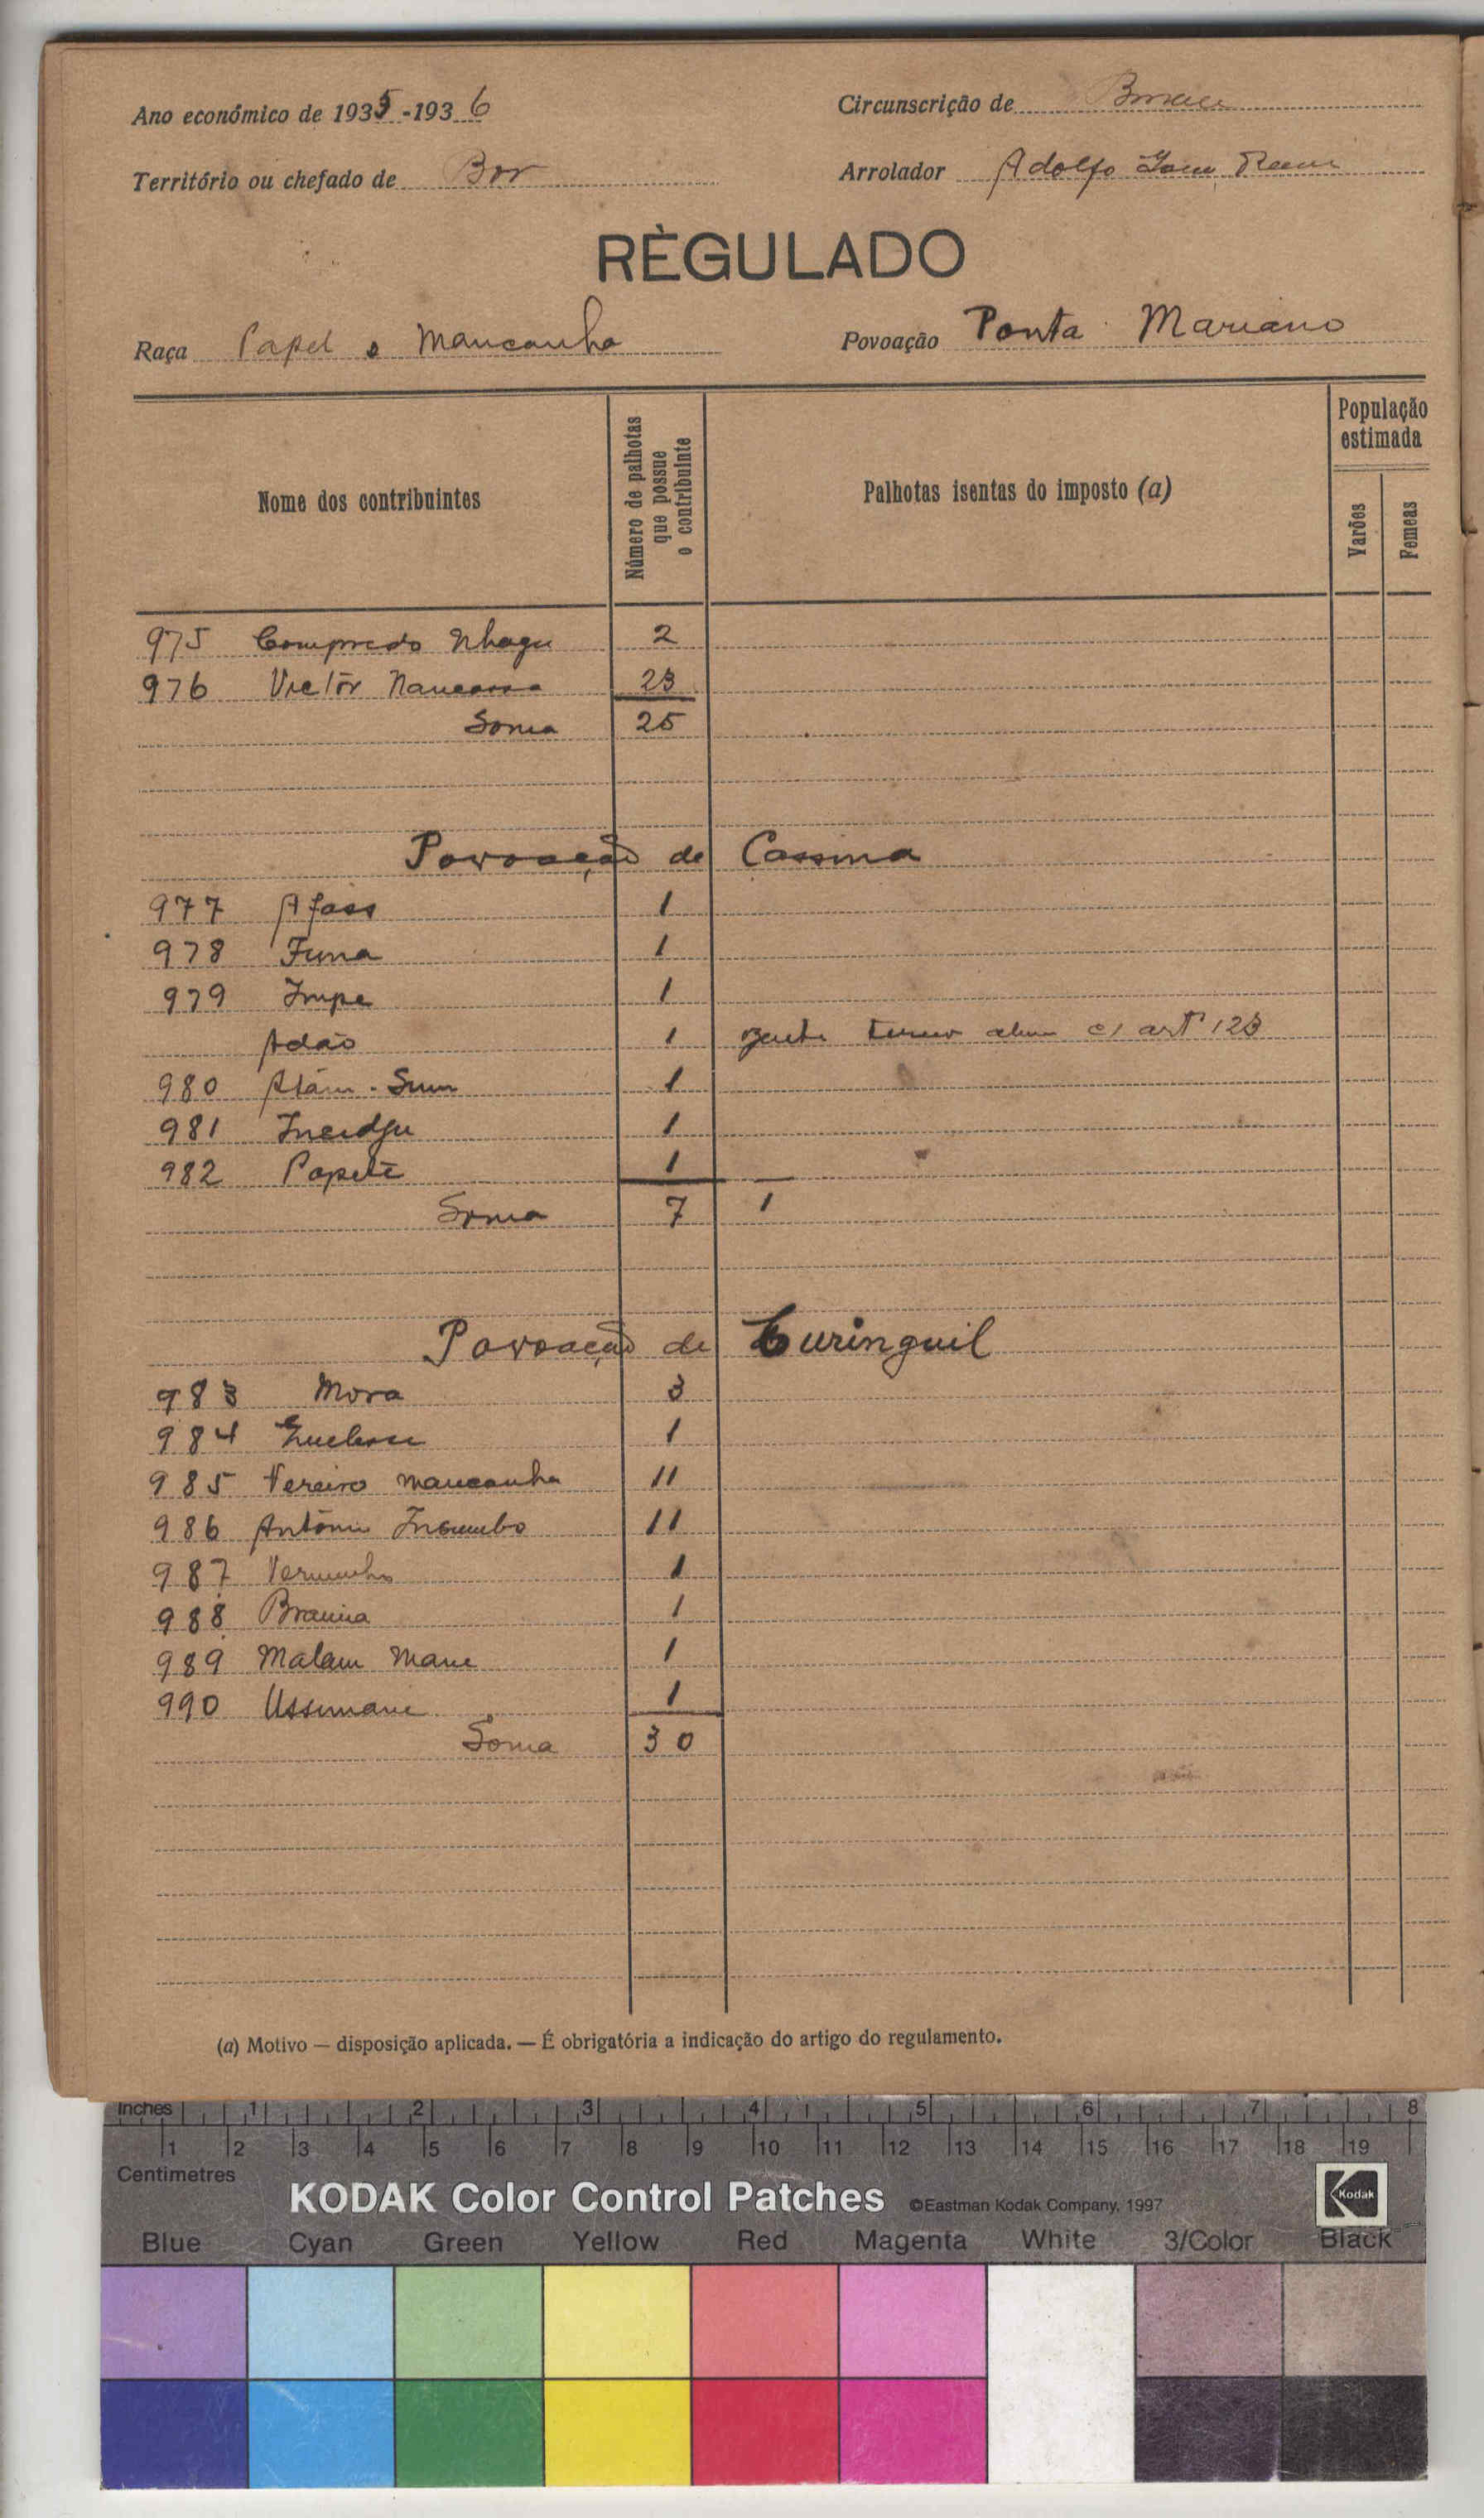 Ano económico de 1935-1936
Circunscrição de Bissau
Território ou chefado de Bor
Arrolador Adolfo
RÈGULADO
Raça Papel e Mancanha
Povoação Ponta Mariano
Nome dos contribuintes
Número de palhotas que possue o contribuinte
Palhotas isentas do imposto (a)
População estimada
Varões
Femeas
975 Compredo Nhaga 2
976 Victôr 23
Soma 25
Povoação de Cassina
977 Afass 1
978 Funa 1
979 Impe 1
Adão 1 c/ artº 123
980 1
981 1
982 Papete 1
Soma 7 1
Povoação de Curinguil
983 Mora 3
984 1
985 Mancanha 11
986 António 11
987 1
988 Braima 1
989 Malam Mane 1
990 Ussumane 1
Soma 30
(a) Motivo — disposição aplicada. — É obrigatória a indicação do artigo do regulamento.
Inches 1 2 3 4 5 6 7 8
1 2 3 4 5 6 7 8 9 10 11 12 13 14 15 16 17 18 19
Centimetres
KODAK Color Control Patches ©Eastman Kodak Company, 1997 Kodak
Blue Cyan Green Yellow Red Magenta White 3/Color Black